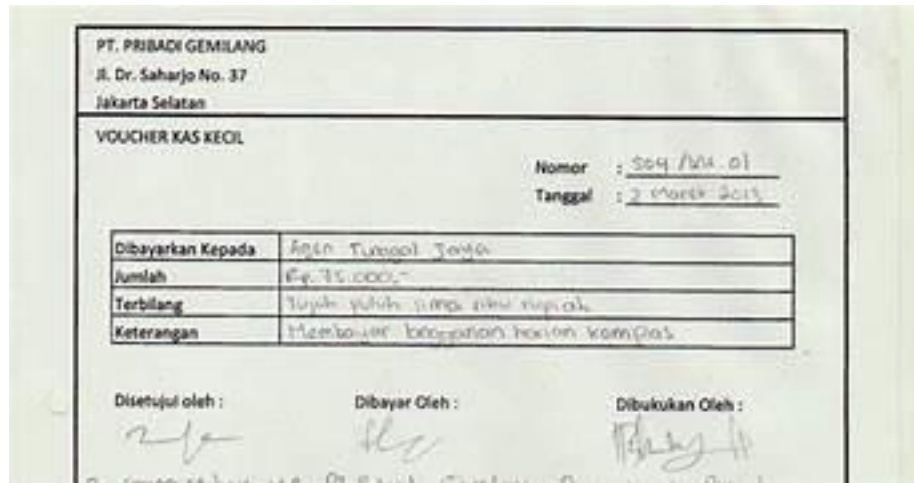 PT. PRIBADI GEMILANG
Jl. Dr. Saharjo No. 37
Jakarta Selatan
VOUCHER KAS KECIL
Nomor :
Tanggal : 2 Maret 2013
Dibayarkan Kepada Agen Tunggal Jaya
Jumlah Rp. 75.000,-
Terbilang Tujuh puluh lima ribu rupiah
Keterangan Membayar langganan harian kompas
Disetujui oleh : Dibayar Oleh : Dibukukan Oleh :